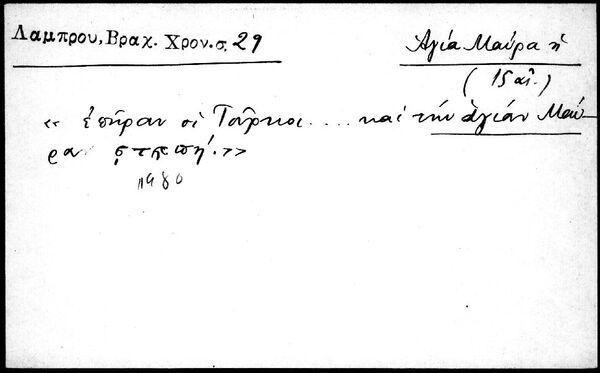 Λαμπρου, Βραχ. Χρον. σ. 29
Ἁγία Μαύρα ἡ
(15 αἰ.)
« ἐπῆραν οἱ Τοῦρκοι .... καὶ τὴν ἁγίαν Μαύ-
ραν ͵ϛ ϡ π η´. »
1480